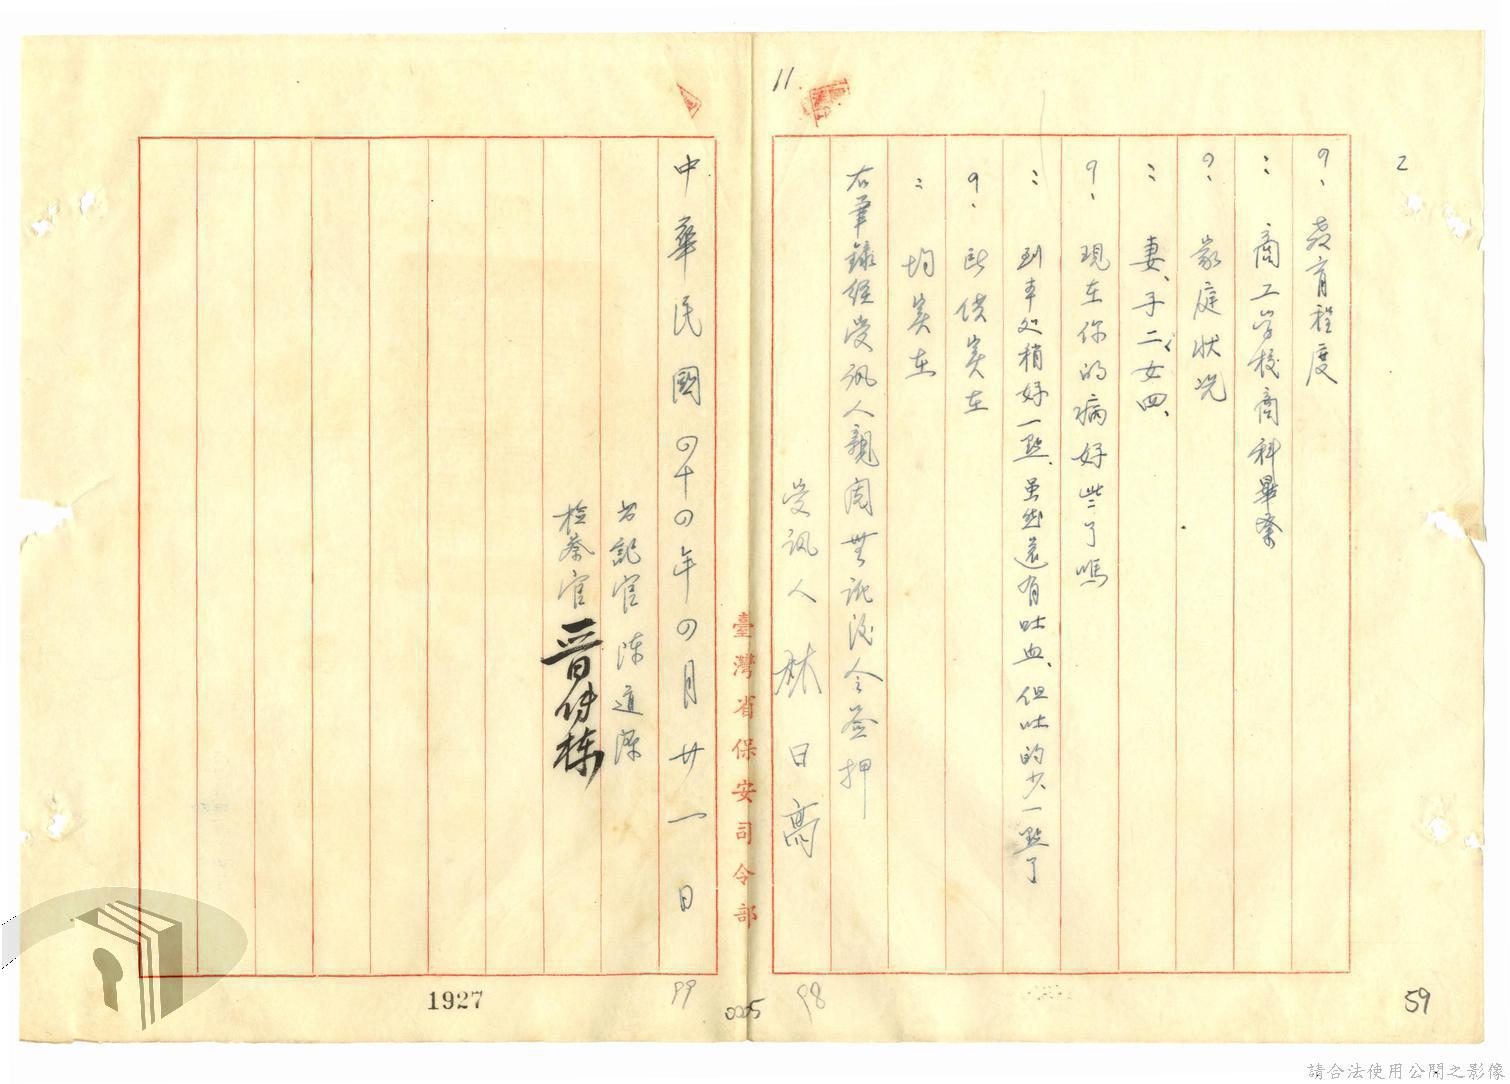 2
?、教育程度
：商工学校商科畢業
?、家庭状况
：妻、子二、女四、
?、現在你的病好些了嗎
：到本处稍好一點、虽然還有吐血、但吐的少一點了
?、所供実在
：均実在
右筆錄經受訊人親閱無訛後令簽押
受訊人 林日高
11.
98
59
臺灣省保安司令部
0005
中華民國四十四年四月廿一日
书記官 陳道
检察官
99
1927
請合法使用公開之影像